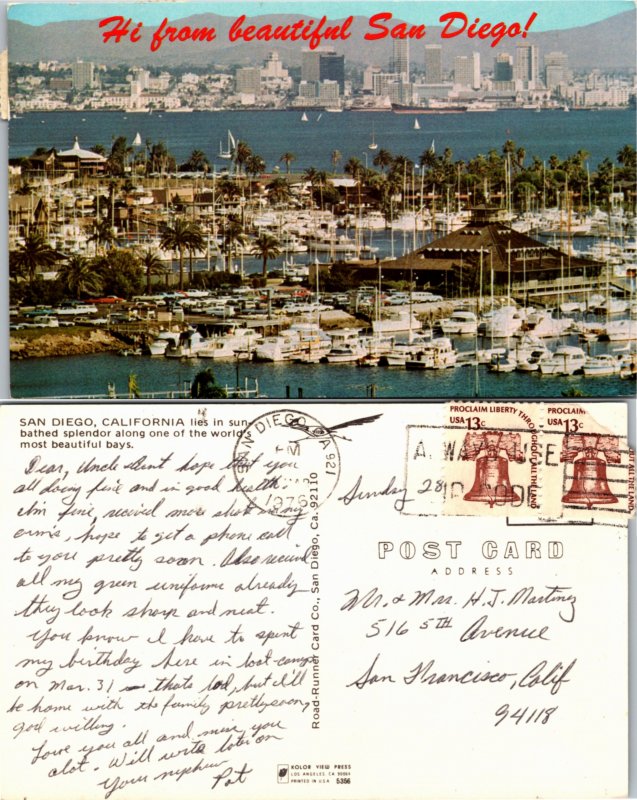 Hi from beautiful San Diego!
SAN DIEGO, CALIFORNIA lies in sun-
bathed splendor along one of the world's
most beautiful bays.
Dear, Uncle & Aunt hope that you
all doing fine and in good health.
I'm fine, recived more shots in my
arms, hope to get a phone call
to you pretty soon. Also received
all my green uniforms already
they look sharp and neat.
You know I have to spent
my birthday here in boot-camp
on Mar. 31 — thats bad, but I'll
be home with the family pretty soon,
god willing.
Love you all and miss you
alot. Will write later on
Your nephew
Pat
SAN DIEGO, CA 921
PM
1976
Road-Runner Card Co., San Diego, Ca. 92110
KOLOR VIEW PRESS
LOS ANGELES, CA 90064
PRINTED IN U.S.A. 5356
Sunday 28
PROCLAIM LIBERTY THROUGHOUT ALL THE LAND
USA 13c
PROCLAIM
USA 13c
OUT ALL THE LAND
ZIP CODE
POST CARD
ADDRESS
Mr. & Mrs. H.J. Martinez
516 5TH Avenue
San Francisco, Calif
94118